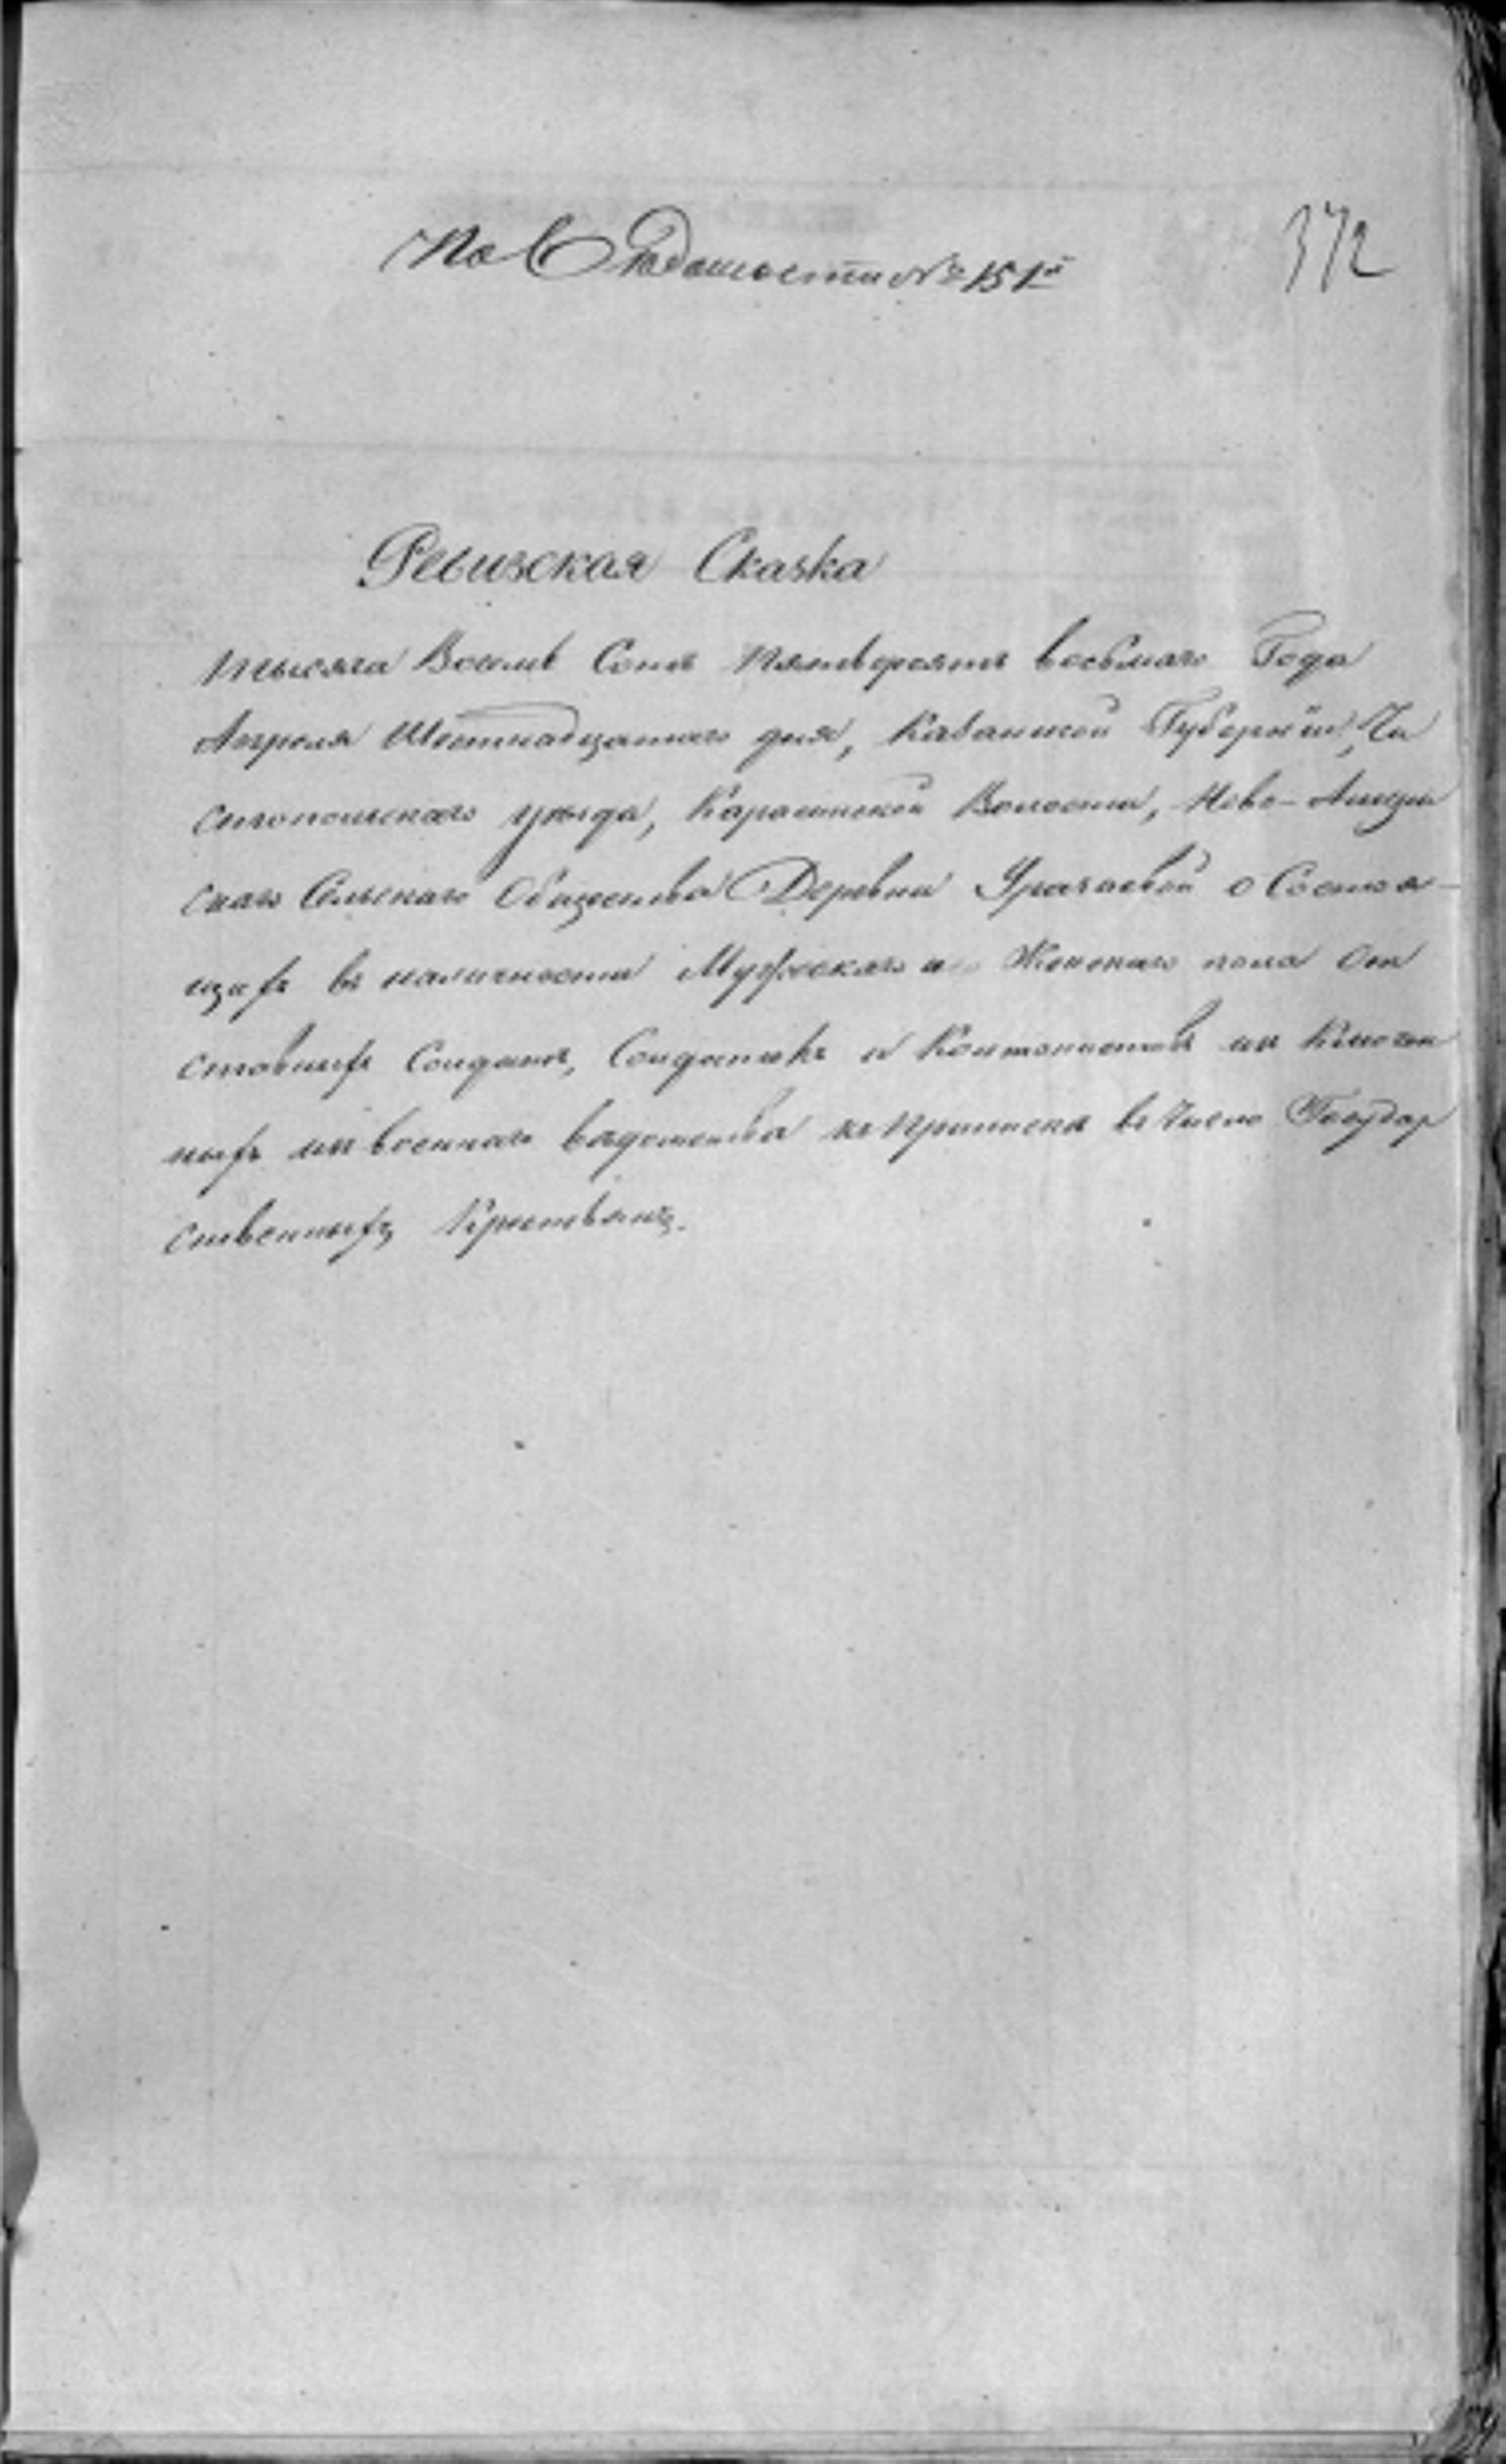 По Вѣдомости № 151й
372
Ревизская Сказка
тысяча Восемь Сотъ пятьдесятъ восьмаго Года
Апреля Шестнадцатаго дня, Казанской Губернiи, Чи
стопольскаго уѣзда, Волости, Ново-
скаго Сельскаго Общества Деревни о Состоя-
щихъ въ наличности Мужескаго и Женскаго пола От
ставныхъ Солдатъ, Солдатокъ и Кантонистовъ изъ Ключен
ныхъ изъ военнаго ведомства къ приписке въ Число Государ
ственныхъ Крестьянъ.